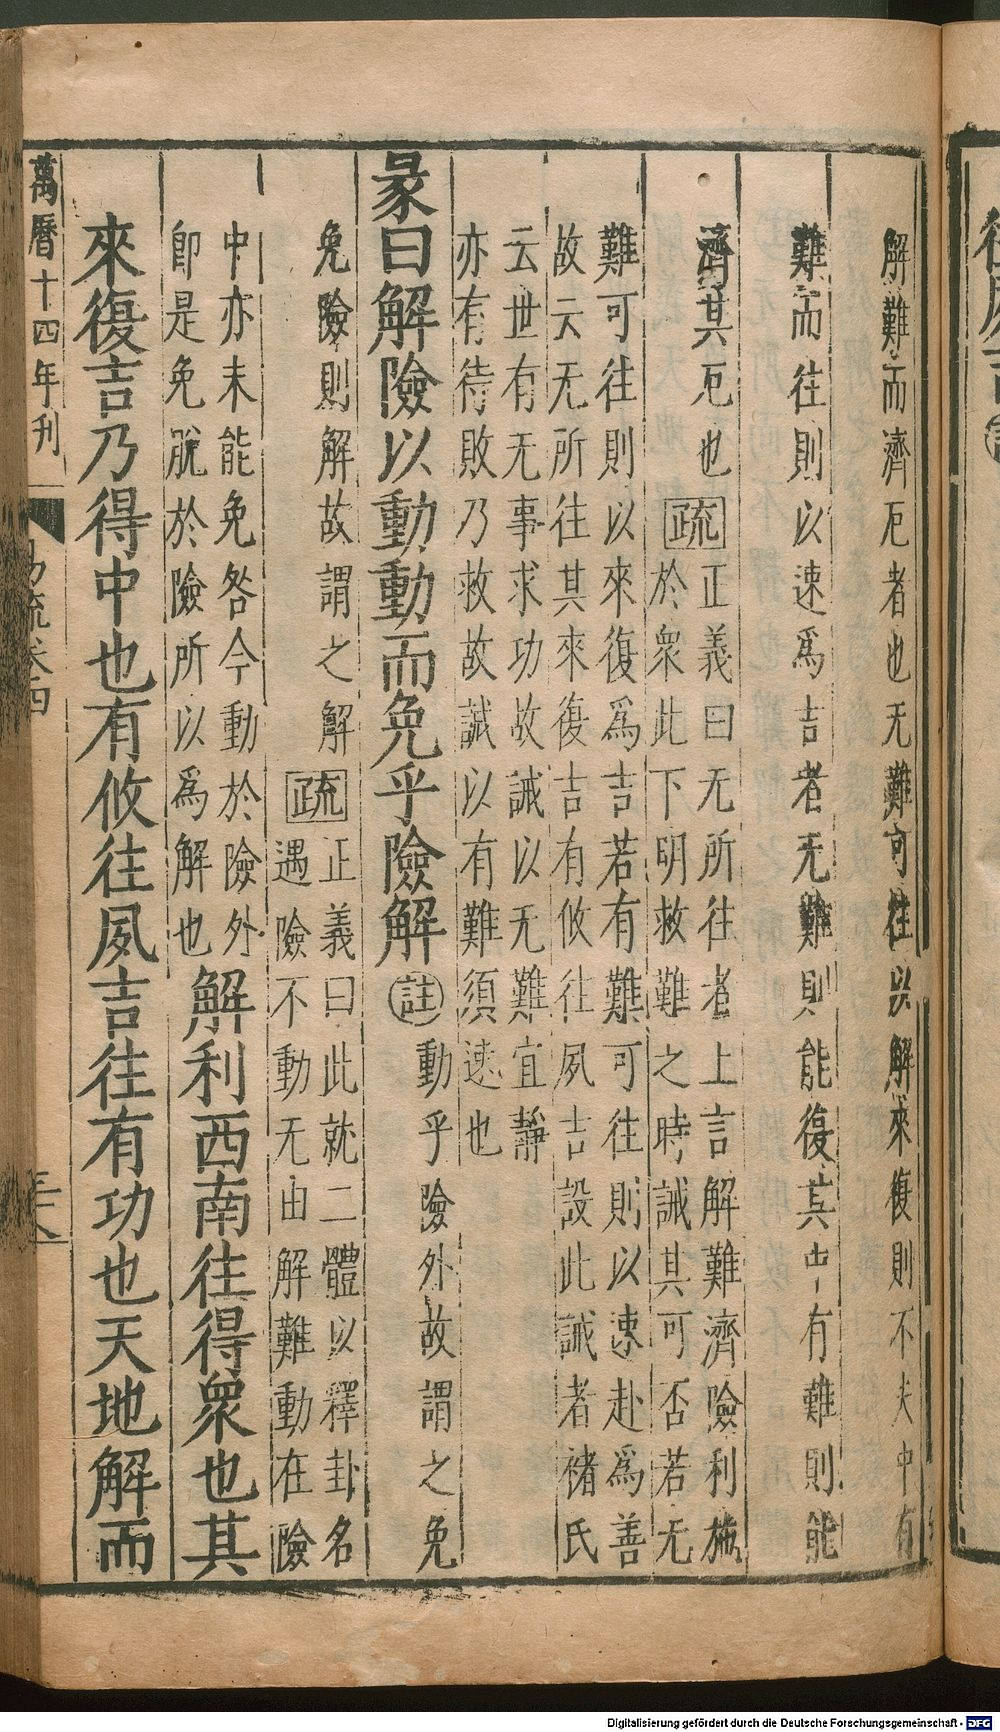 解難而濟厄者也无難可往以解來復則不失中有
難而往則以速爲吉者无難則能復其中有難則能
濟其厄也
疏
正義曰无所往者上言解難濟險利施
於衆此下明救難之時誡其可否若无
難可往則以來復爲吉若有難可往則以速赴爲善
故云无所往其來復吉有攸往夙吉設此誡者褚氏
云世有无事求功故誡以无難宜靜
亦有待敗乃救故誡以有難須速也
彖曰解險以動動而免乎險解
註
動乎險外故謂之免
免險則解故謂之解
疏
正義曰此就二體以釋卦名
遇險不動无由解難動在險
中亦未能免咎今動於險外
卽是免脫於險所以爲解也
解利西南往得衆也其
來復吉乃得中也有攸往夙吉往有功也天地解而
萬曆十四年刊
易疏卷四
Digitalisierung gefördert durch die Deutsche Forschungsgemeinschaft - DFG